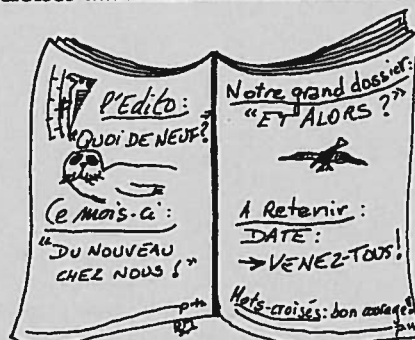 l'Edito:
"QUOI DE NEUF?
Ce mois-ci:
"DU NOUVEAU
CHEZ NOUS!"
Notre grand dossier:
"ET ALORS?"
A Retenir:
DATE:
→VENEZ-TOUS!
Mots-croisés: bon courage!